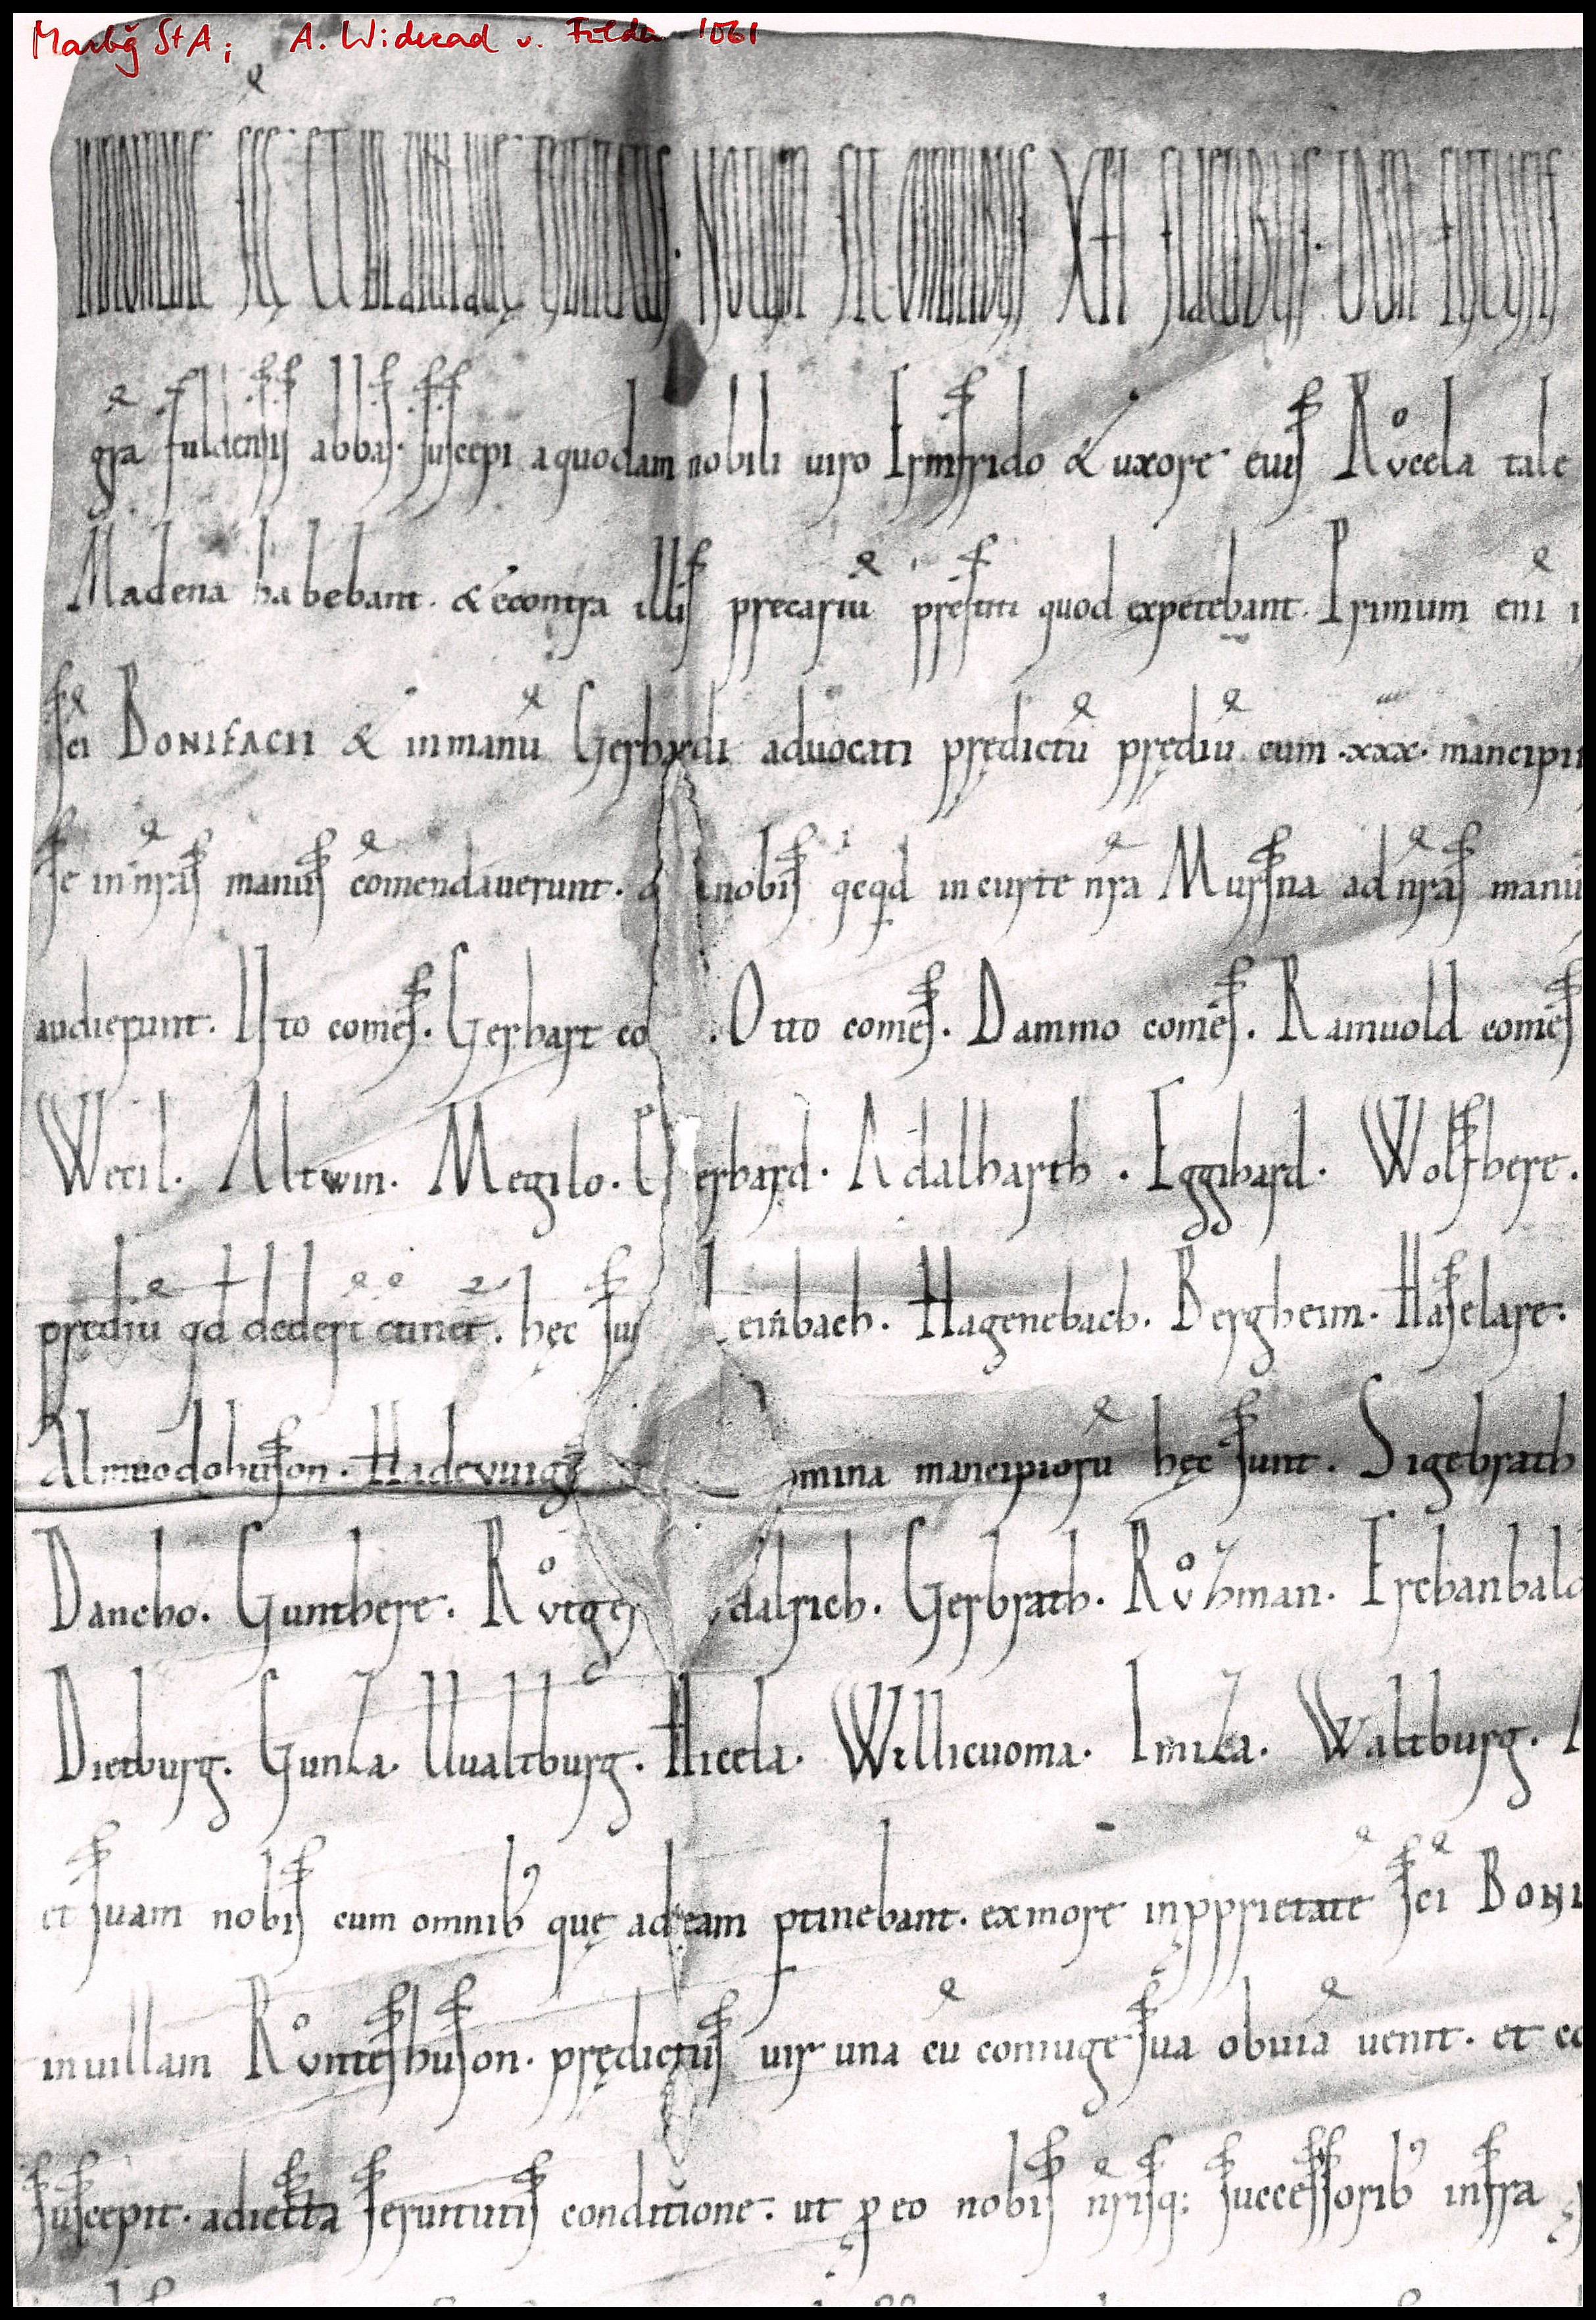 Marbg StA; A. Widerad v. Fulda 1061
IN NOMINE SCE ET INDIVIDUE TRINITATIS. NOTUM SIT OMNIBUS XPI FIDELIBUS. TAM FUTURIS
gra fuldensis abbas. suscepi a quodam nobili uiro Irmfrido & uxore eius Růcela tale
Madena habebant. & econtra illis precariū prestiti quod expetebant. Primum eni
sci BONIFACII & in manū Gerhardi aduocati prędictū prędiū cum .xxx. mancipii
se in nras manus cōmendauerunt. nobis qcqd in curte nra Mursna ad nras manu
audierunt. Uto comes. Gerhart co . Otto comes. Dammo comes. Ramuold comes
Wecil. Altwin. Megilo. Gerhard. Adalharth. Eggihard. Wolfhere.
prediū qd dedert ęunet. hęc sun einbach. Hagenebach. Bergheim. Haselare.
Almuodohuson. Hadevuig omina mancipiorū hęc sunt. Sigebrath
Dancho. Gunthere. Růtger dalrich. Gerbrath. Růhman. Erchanbald
Dietburg. Gunza. Uualtburg. Hicela. Willicuoma. Imiza. Waltburg.
et suam nobis cum omnib' quę ad eam ptinebant. ex more in pprietatē sci BONI
in uillam Růnteshuson. prędictus uir una cū coniuge sua obuiā uenit. et
suscepit. adiecta seruitutis conditione. ut p eo nobis nrisq; successorib' infra